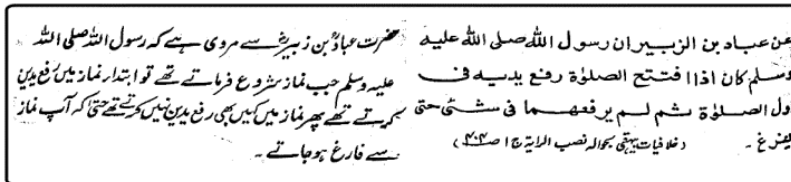 عن عباد بن الزبیر ان رسول الله صلی الله علیه
وسلم کان اذا افتتح الصلوٰة رفع یدیه فی
اول الصلوٰة ثم لم یرفعهما فی شئی حتی
یفرغ ۔ (خلافیات بیہقی بحوالہ نصب الرایة ج ۱ ص ۴۰۴)
حضرت عبادؒ بن زبیرؓ سے مروی ہے کہ رسول اللہ صلی اللہ
علیہ وسلم جب نماز شروع فرماتے تھے تو ابتداء نماز میں رفع یدین
کرتے تھے پھر نماز میں کہیں بھی رفع یدین نہیں کرتے تھے حتیٰ کہ آپ نماز
سے فارغ ہو جاتے ۔